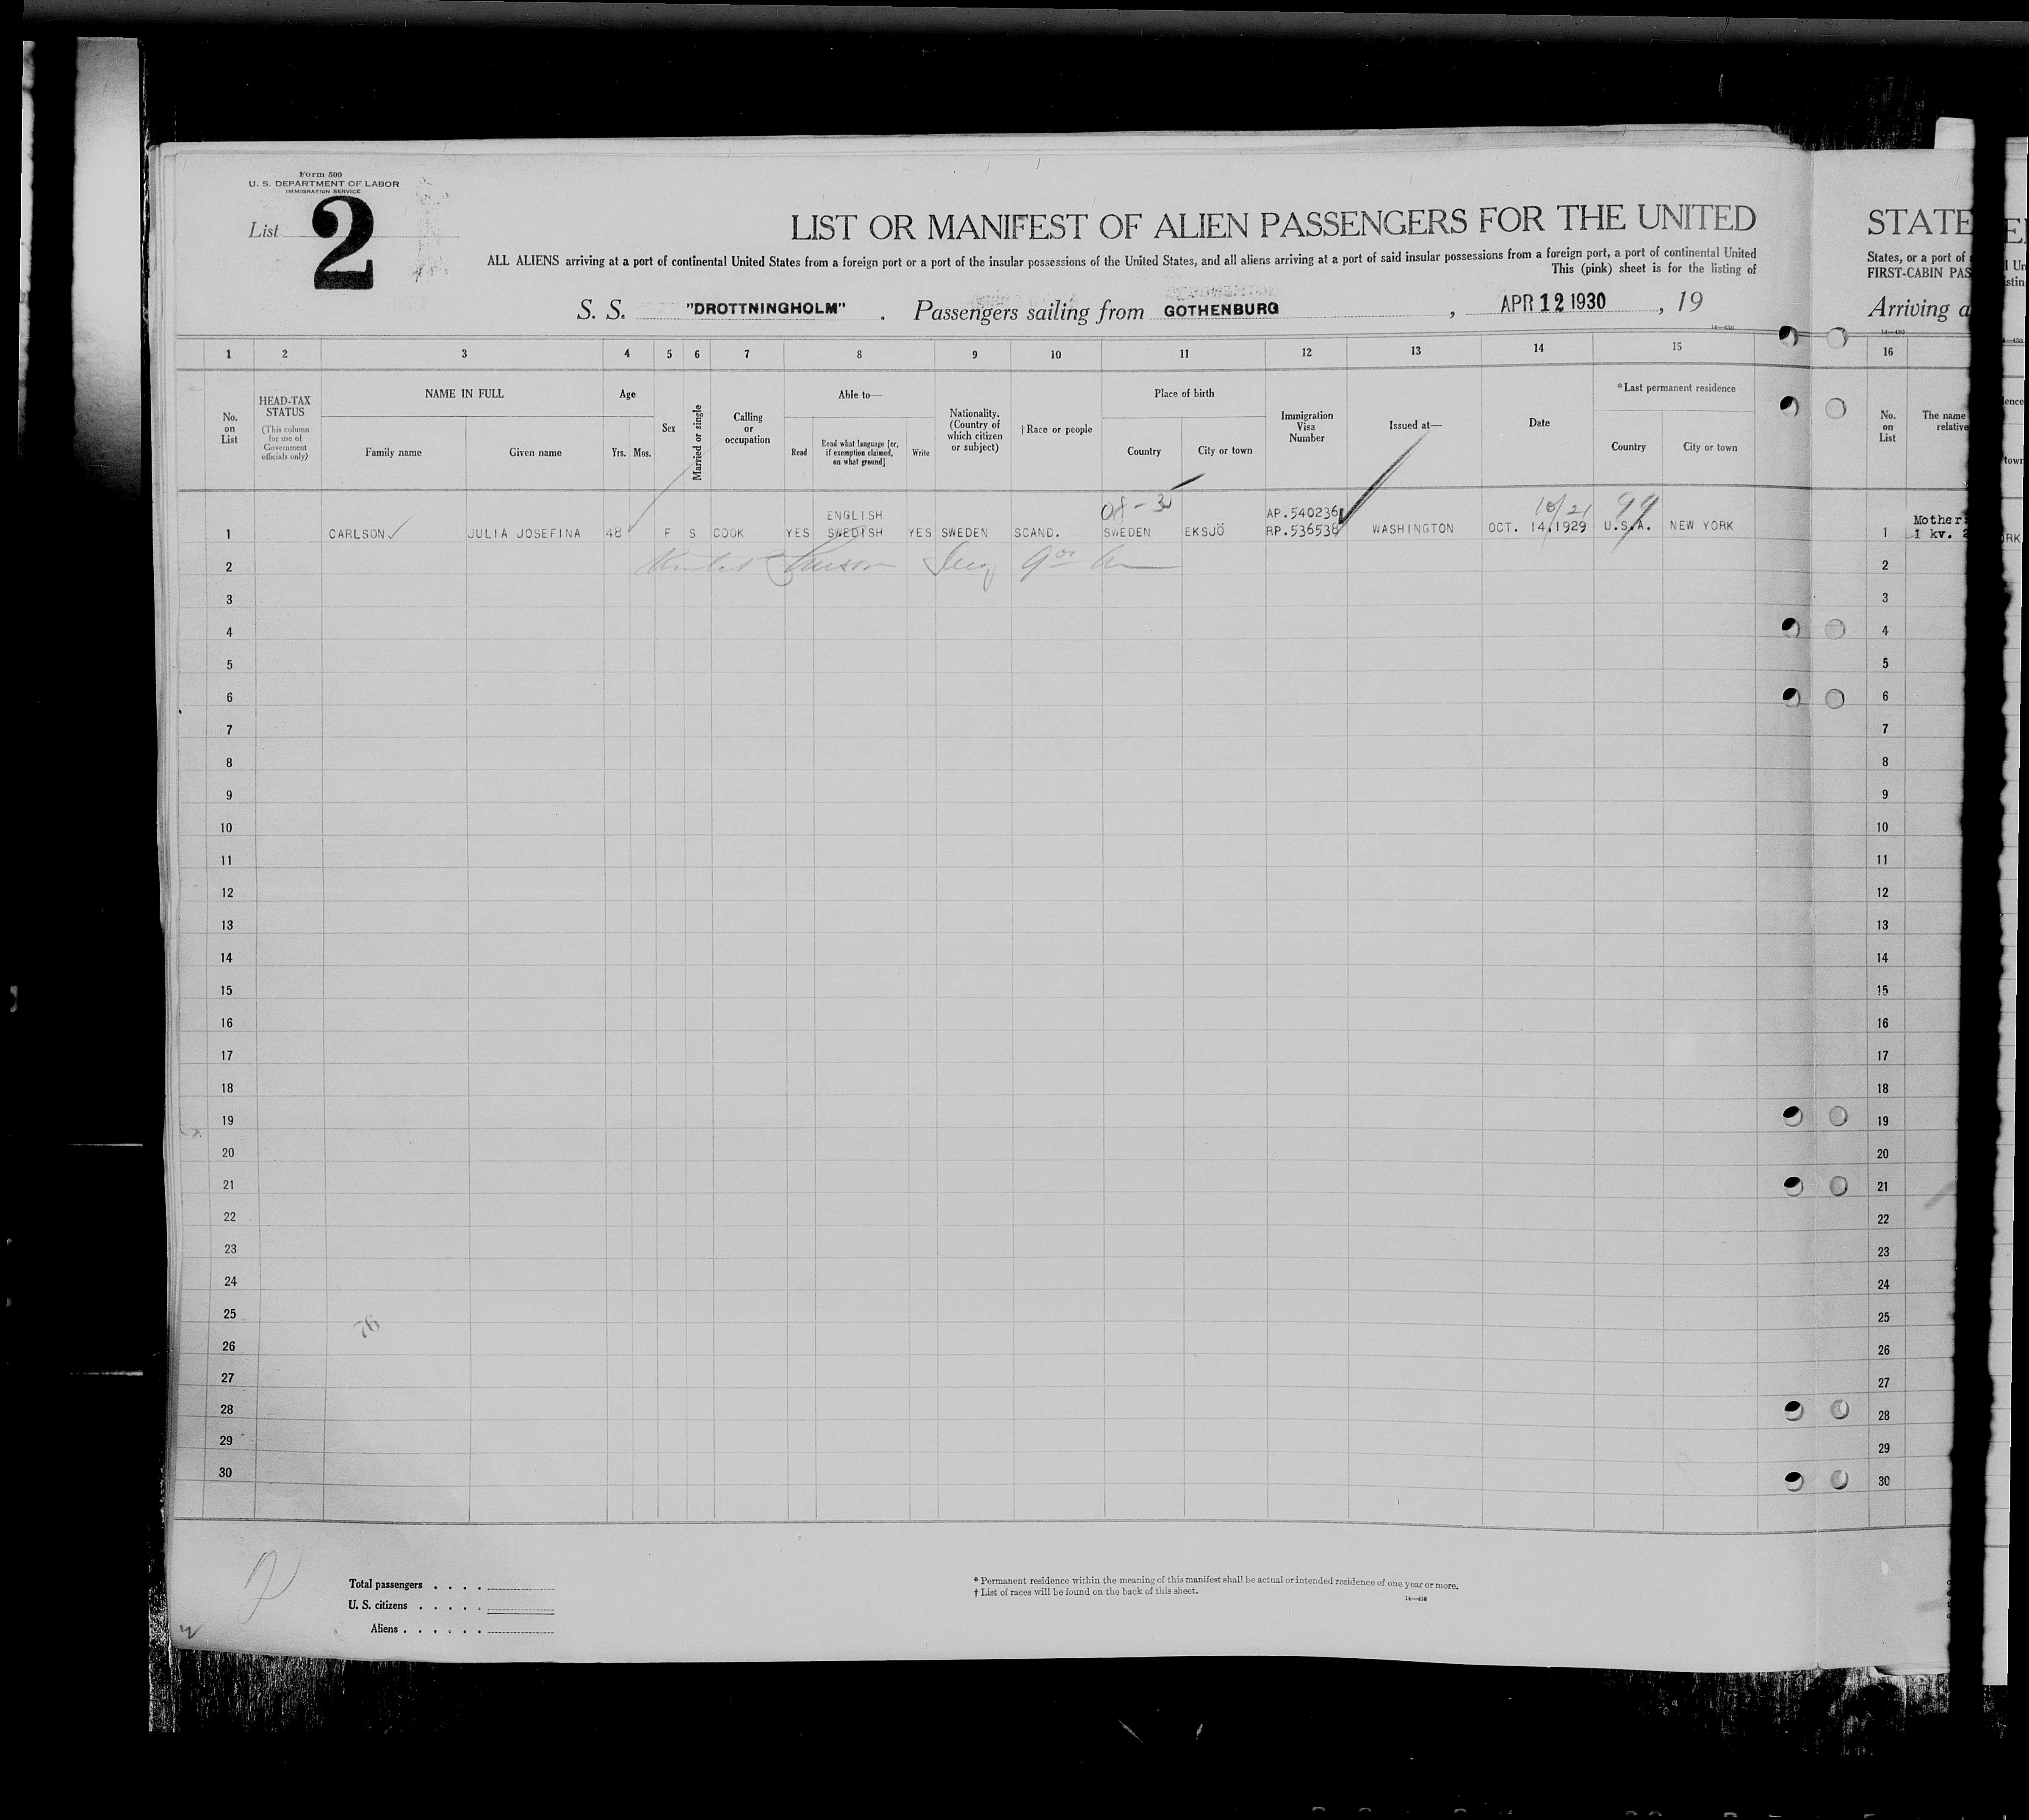 Form 500
U. S. DEPARTMENT OF LABOR
IMMIGRATION SERVICE
List 2
LIST OR MANIFEST OF ALIEN PASSENGERS FOR THE UNITED
ALL ALIENS arriving at a port of continental United States from a foreign port or a port of the insular possessions of the United States, and all aliens arriving at a port of said insular possessions from a foreign port, a port of continental United
This (pink) sheet is for the listing of
S. S. "DROTTNINGHOLM" . Passengers sailing from GOTHENBURG , APR 12 1930 , 19
14—430
1 2 3 4 5 6 7 8 9 10 11 12 13 14 15
No. on List
HEAD-TAX STATUS
(This column for use of Government officials only)
NAME IN FULL
Family name
Given name
Age
Yrs. Mos.
Sex
Married or single
Calling or occupation
Able to—
Read
Read what language [or, if exemption claimed, on what ground]
Write
Nationality. (Country of which citizen or subject)
† Race or people
Place of birth
Country
City or town
Immigration Visa Number
Issued at—
Date
*Last permanent residence
Country
City or town
08-3 10/21 99
ENGLISH AP.540236
1 CARLSON JULIA JOSEFINA 48 F S COOK YES SWEDISH YES SWEDEN SCAND. SWEDEN EKSJÖ RP.536538 WASHINGTON OCT. 14.1929 U.S.A. NEW YORK
2
3
4
5
6
7
8
9
10
11
12
13
14
15
16
17
18
19
20
21
22
23
24
25
76
26
27
28
29
30
Total passengers . . . .
U. S. citizens . . . . .
Aliens . . . . . .
* Permanent residence within the meaning of this manifest shall be actual or intended residence of one year or more.
† List of races will be found on the back of this sheet.
14—430
STATE
States, or a port of
FIRST-CABIN PAS
Arriving a
14—430
16
No. on List
The name
relative
Mother
1 1 kv. 2
2
3
4
5
6
7
8
9
10
11
12
13
14
15
16
17
18
19
20
21
22
23
24
25
26
27
28
29
30